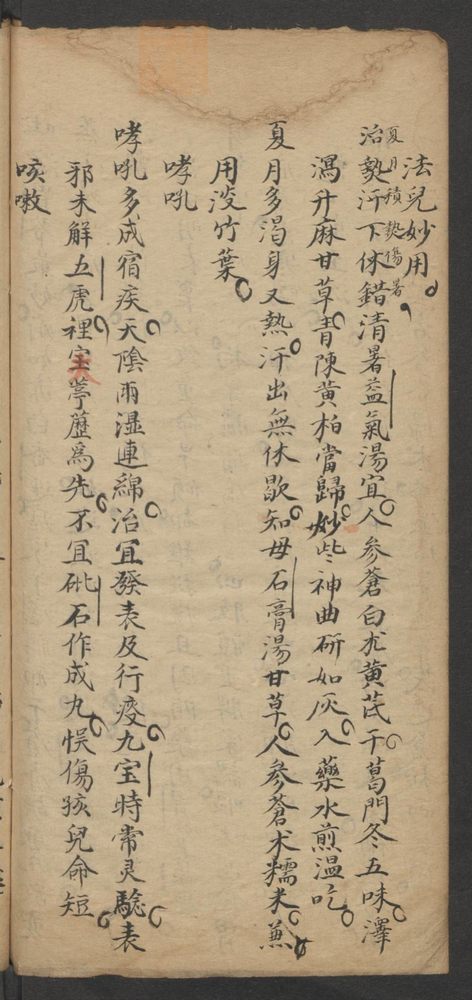 法兒妙用
夏月積熱傷暑
治熱汗下休錯清暑益氣湯宜人參蒼白朮黃芪干葛門冬五味澤
瀉升麻甘草青陳黃柏當歸妙些神曲研如灰入藥水煎溫吃
夏月多渴身又熱汗出無休歇知母石膏湯甘草人參蒼朮糯米兼
用淡竹葉
哮吼
哮吼多成宿疾天陰雨濕連綿治宜發表及行痰九宝時常灵驗表
邪未解五虎裡宝葶藶爲先不宜砒石作成丸悮傷孩兒命短
咳嗽